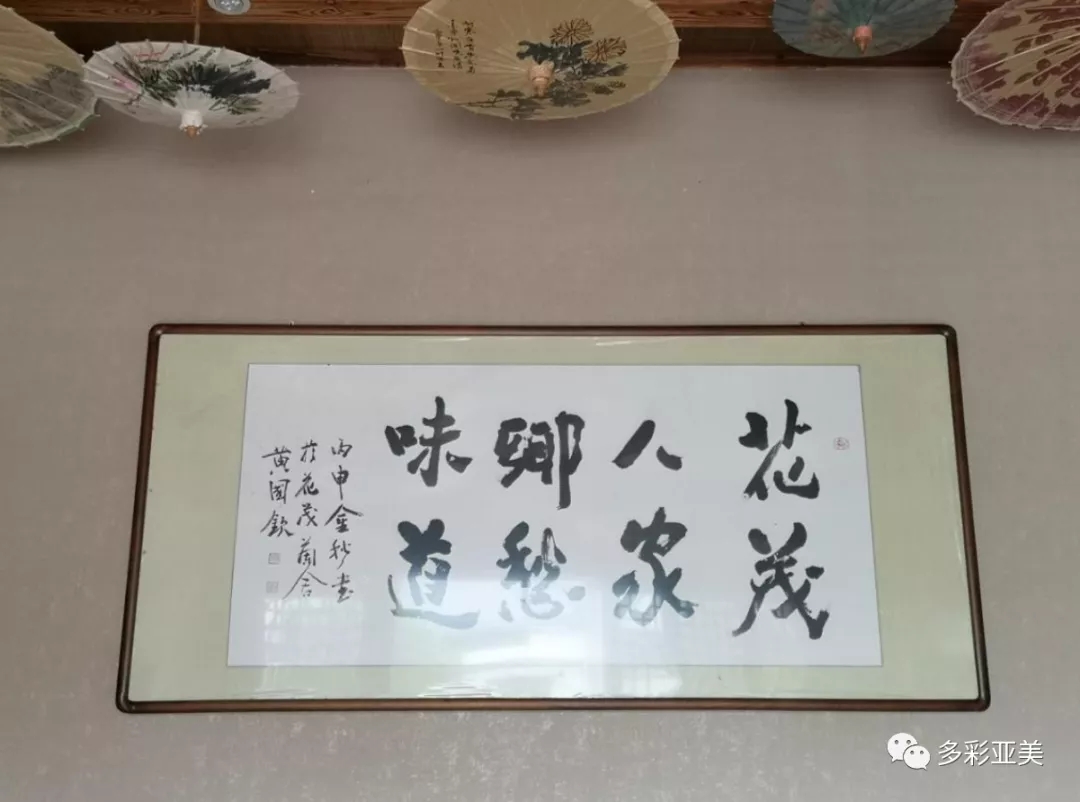 花茂
人家
鄉愁
味道
丙申金秋书
於花茂蘭舍
黄国欽
多彩亚美